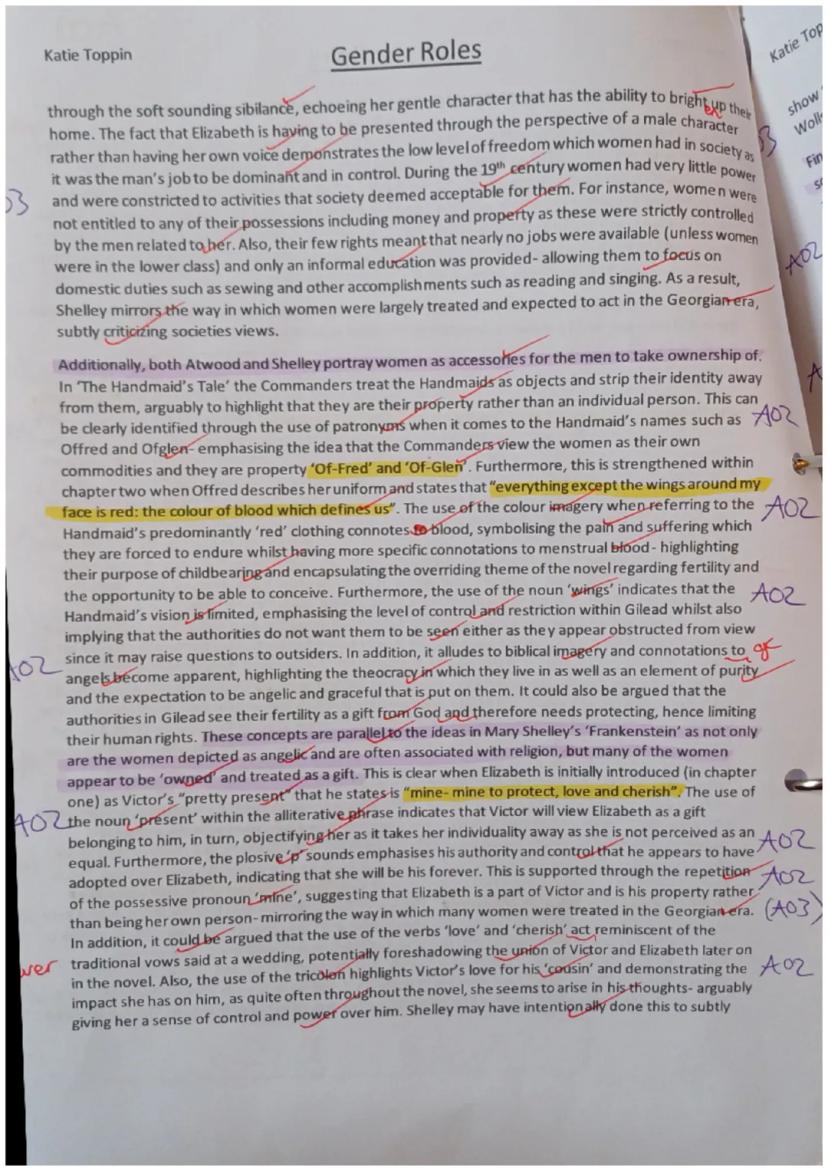 Katie Toppin
Gender Roles
through the soft sounding sibilance, echoeing her gentle character that has the ability to bright up their
en
home. The fact that Elizabeth is having to be presented through the perspective of a male character
rather than having her own voice demonstrates the low level of freedom which women had in society as
it was the man's job to be dominant and in control. During the 19th century women had very little power
and were constricted to activities that society deemed acceptable for them. For instance, women were
not entitled to any of their possessions including money and property as these were strictly controlled
by the men related to her. Also, their few rights meant that nearly no jobs were available (unless women
were in the lower class) and only an informal education was provided- allowing them to focus on
domestic duties such as sewing and other accomplishments such as reading and singing. As a result,
Shelley mirrors the way in which women were largely treated and expected to act in the Georgian era,
subtly criticizing societies views.
Additionally, both Atwood and Shelley portray women as accessories for the men to take ownership of.
In 'The Handmaid's Tale' the Commanders treat the Handmaids as objects and strip their identity away
from them, arguably to highlight that they are their property rather than an individual person. This can
be clearly identified through the use of patronyms when it comes to the Handmaid's names such as
AO2
Offred and Ofglen- emphasising the idea that the Commanders view the women as their own
commodities and they are property 'Of-Fred' and 'Of-Glen'. Furthermore, this is strengthened within
chapter two when Offred describes her uniform and states that "everything except the wings around my
face is red: the colour of blood which defines us". The use of the colour imagery when referring to the
AO2
Handmaid's predominantly 'red' clothing connotes to blood, symbolising the pain and suffering which
they are forced to endure whilst having more specific connotations to menstrual blood- highlighting
their purpose of childbearing and encapsulating the overriding theme of the novel regarding fertility and
the opportunity to be able to conceive. Furthermore, the use of the noun 'wings' indicates that the
AO2
Handmaid's vision is limited, emphasising the level of control and restriction within Gilead whilst also
implying that the authorities do not want them to be seen either as they appear obstructed from view
since it may raise questions to outsiders. In addition, it alludes to biblical imagery and connotations to
AO2
angels become apparent, highlighting the theocracy in which they live in as well as an element of purity
and the expectation to be angelic and graceful that is put on them. It could also be argued that the
authorities in Gilead see their fertility as a gift from God and therefore needs protecting, hence limiting
their human rights. These concepts are parallel to the ideas in Mary Shelley's 'Frankenstein' as not only
are the women depicted as angelic and are often associated with religion, but many of the women
appear to be 'owned' and treated as a gift. This is clear when Elizabeth is initially introduced (in chapter
one) as Victor's "pretty present" that he states is "mine- mine to protect, love and cherish". The use of
AO2
the noun 'present' within the alliterative phrase indicates that Victor will view Elizabeth as a gift
belonging to him, in turn, objectifying her as it takes her individuality away as she is not perceived as an
AO2
equal. Furthermore, the plosive 'p' sounds emphasises his authority and control that he appears to have
adopted over Elizabeth, indicating that she will be his forever. This is supported through the repetition
AO2
of the possessive pronoun 'mine', suggesting that Elizabeth is a part of Victor and is his property rather
than being her own person- mirroring the way in which many women were treated in the Georgian era.
(AO3)
In addition, it could be argued that the use of the verbs 'love' and 'cherish' act reminiscent of the
traditional vows said at a wedding, potentially foreshadowing the union of Victor and Elizabeth later on
in the novel. Also, the use of the tricolon highlights Victor's love for his 'cousin' and demonstrating the
AO2
impact she has on him, as quite often throughout the novel, she seems to arise in his thoughts- arguably
giving her a sense of control and power over him. Shelley may have intentionally done this to subtly
Katie Top
show
AO2